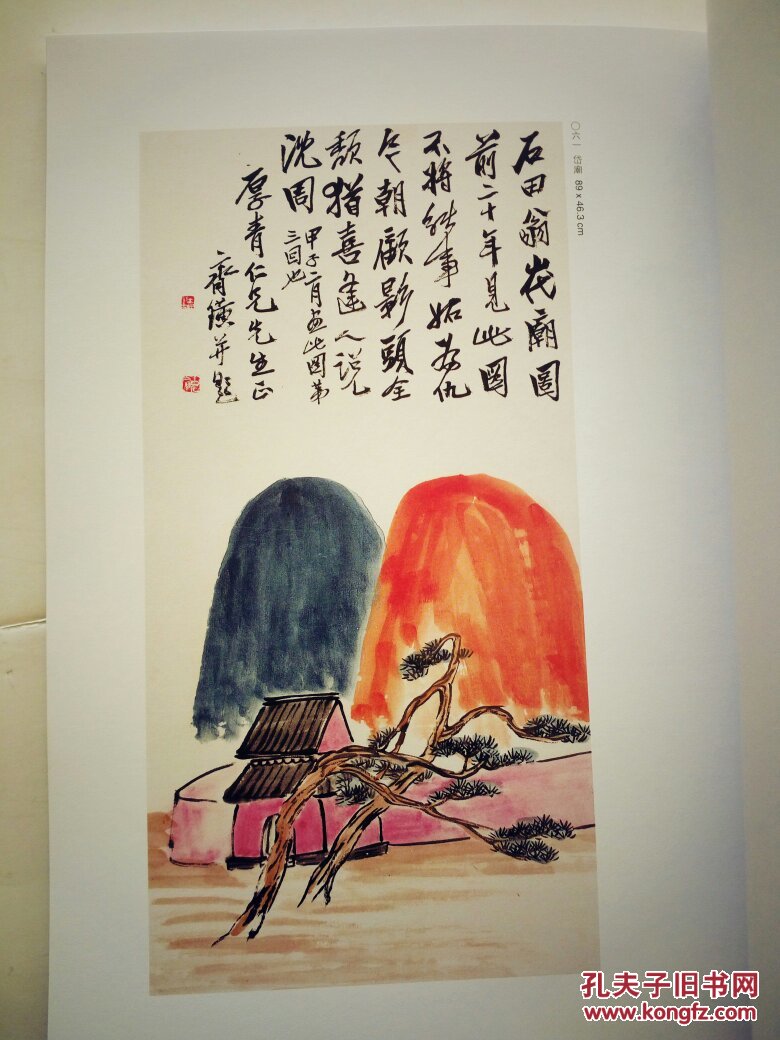 〇六一 岱廟 89 x 46.3 cm
石田翁岱廟圖
前二十年見此圖
不將能事妬為仇
今朝顧影頭全
頹猶喜逢人說
沈周
甲子二月画此图第
三回也
厚青仁兄先生正
齊璜并題
孔夫子旧书网
www.kongfz.com